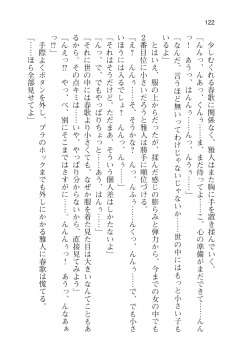 122
少しむくれる春歌に関係なく、雅人はまた胸に手を置き揉んでいく。
「んんっ、あんっ、んくっ……ま、まだ待ってよ……、心の準備がまだできて……んん
っ！　あうっ、はぁっ、んんんっ」
「なんだ、言うほど無いってわけじゃないじゃないか……世の中にはもっと小さい子も
いるんだから……そうだな……」
とはいえ、服の上からだったけど、揉んだ感じの膨らみと弾力から、今までの女の中でも
２番目位に小さいだろうと雅人は勝手に順位づける。
「えっ？　んんっ……そ、そうかな？　んんんっ、でも……でも、やっぱり……もっと大き
いほうには入るでしょ？　んんっ、んんんっ……」
「それはそうだけど、そういう個人差はしかたないよ」
「んんっ……でも、でもやっぱりちょっと……あうっ、んんっ」
「それに世の中には春歌より小さくても、なぜか服を着た見た目は大きいなんてこともあ
るから、その点キミは……いや、やっぱり分からないから、直接見てみよう」
「んえっ!?　やっ、べ、別に今のままでも……んんんぅっ！　あうっ、んんっ、んなあぁ
っ!?」
手際よくボタンを外し、ブラのホックまでも外しにかかる雅人に春歌は慌てる。
「……ほら全部見せてよ」